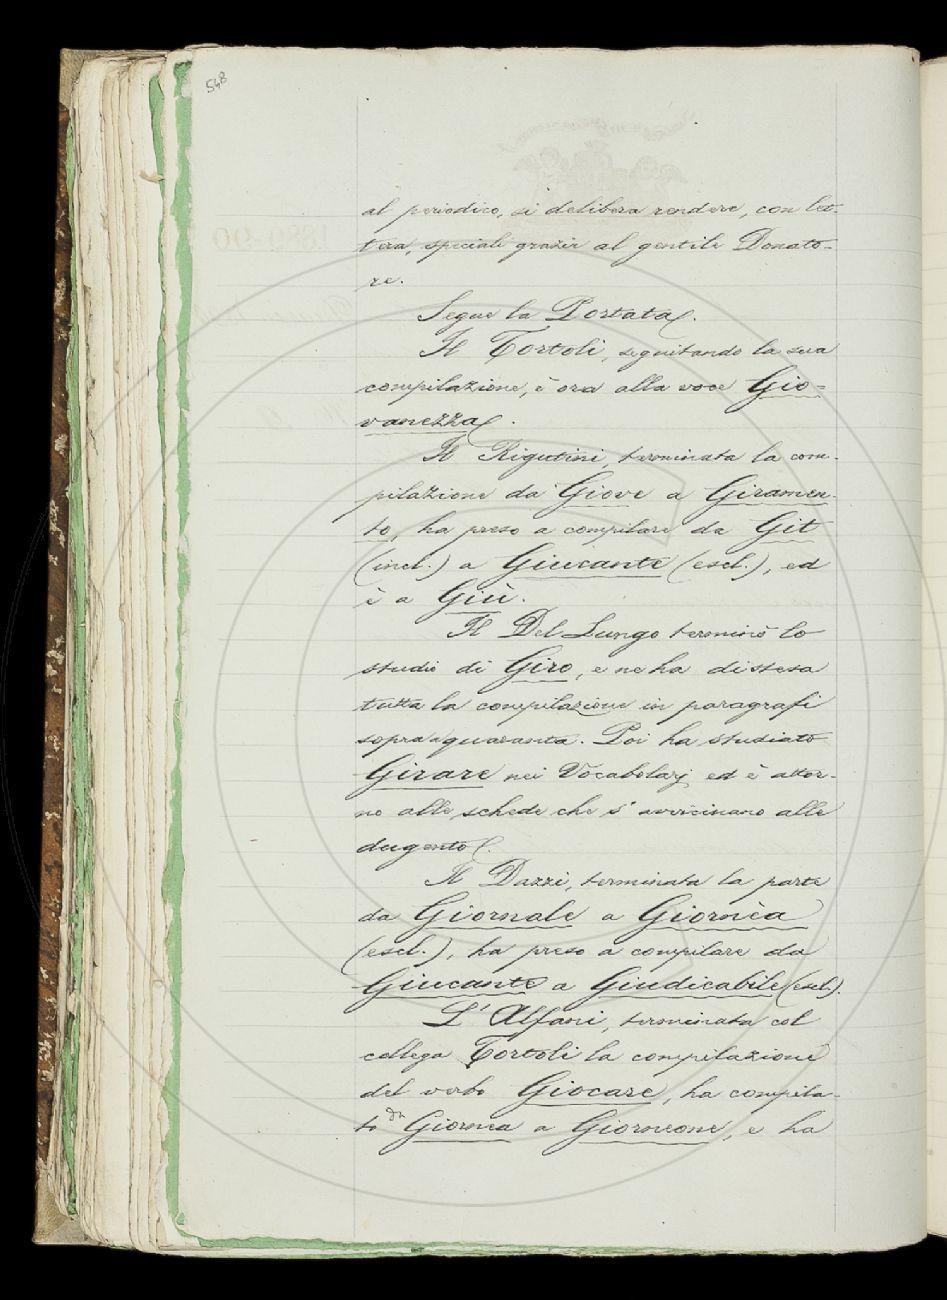 548
al periodico, si delibera rendere, con let-
tera, speciali grazie al gentile Donato-
re.
Segue la Portata.
Il Tortoli, seguitando la sua
compilazione, è ora alla voce Gio-
vanezza.
Il Rigutini, terminata la com-
pilazione da Giove a Giramen-
to, ha preso a compilare da Git
(incl.) a Giucante (escl.), ed
è a Giù.
Il Del Lungo terminò lo
studio di Giro, e ne ha distesa
tutta la compilazione in paragrafi
sopra quaranta. Poi ha studiato
Girare nei Vocabolarj, ed è attor-
no alle schede che s'avvicinano alle
dugento.
Il Dazzi, terminata la parte
da Giornale a Giornèa
(escl.), ha preso a compilare da
Giucante a Giudicabile (escl.).
L'Alfani, terminata col
collega Tortoli la compilazione
del verbo Giocare, ha compila-
to da Giornea a Giorneone, e ha